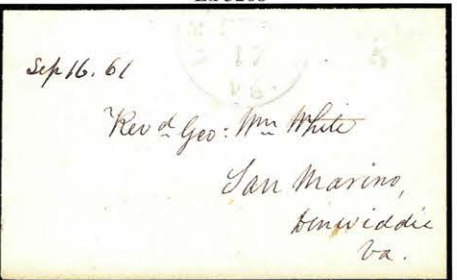 Sep 16. 61
17
VA.
Revd Geo: Wm White
San Marino,
Dinwiddie
Va.